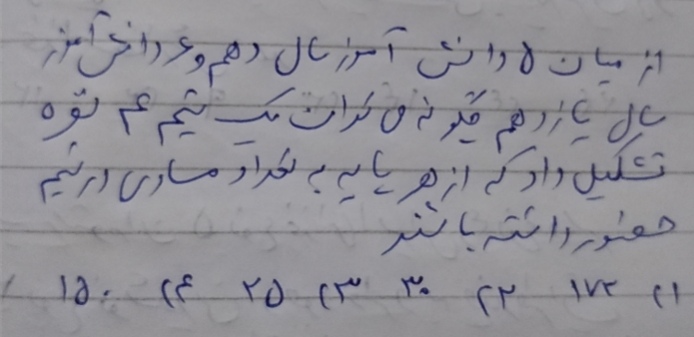 از میان ۵ دانش آموز سال دهم و ۶ دانش آموز
سال یازدهم چگونه می توان یک تیم ۴ نفره
تشکیل داد که از هر پایه به تعداد مساوی در تیم
حضور داشته باشند
۱) ۱۷۲ ۲) ۳۰ ۳) ۲۵ ۴) ۱۵۰